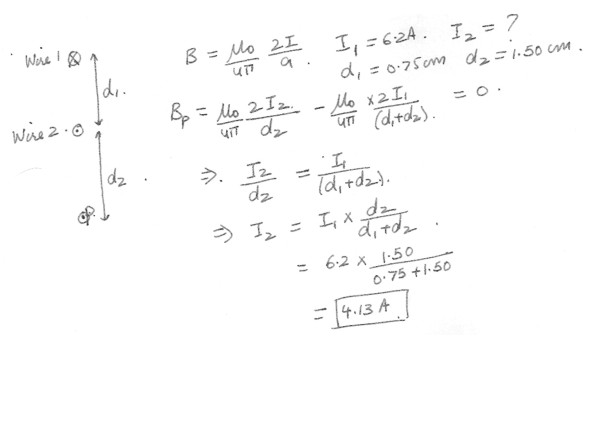 Wire 1 ⊗
d₁.
Wire 2. ⊙
d₂ .
P.
B = μ₀/4π 2I/a . I₁ = 6.2A. I₂ = ?
d₁ = 0.75cm d₂ = 1.50 cm.
Bₚ = μ₀/4π 2I₂/d₂ - μ₀/4π × 2I₁/(d₁+d₂). = 0.
⇒. I₂/d₂ = I₁/(d₁+d₂).
⇒ I₂ = I₁ × d₂/d₁+d₂ .
= 6.2 × 1.50/0.75 + 1.50
= 4.13 A.